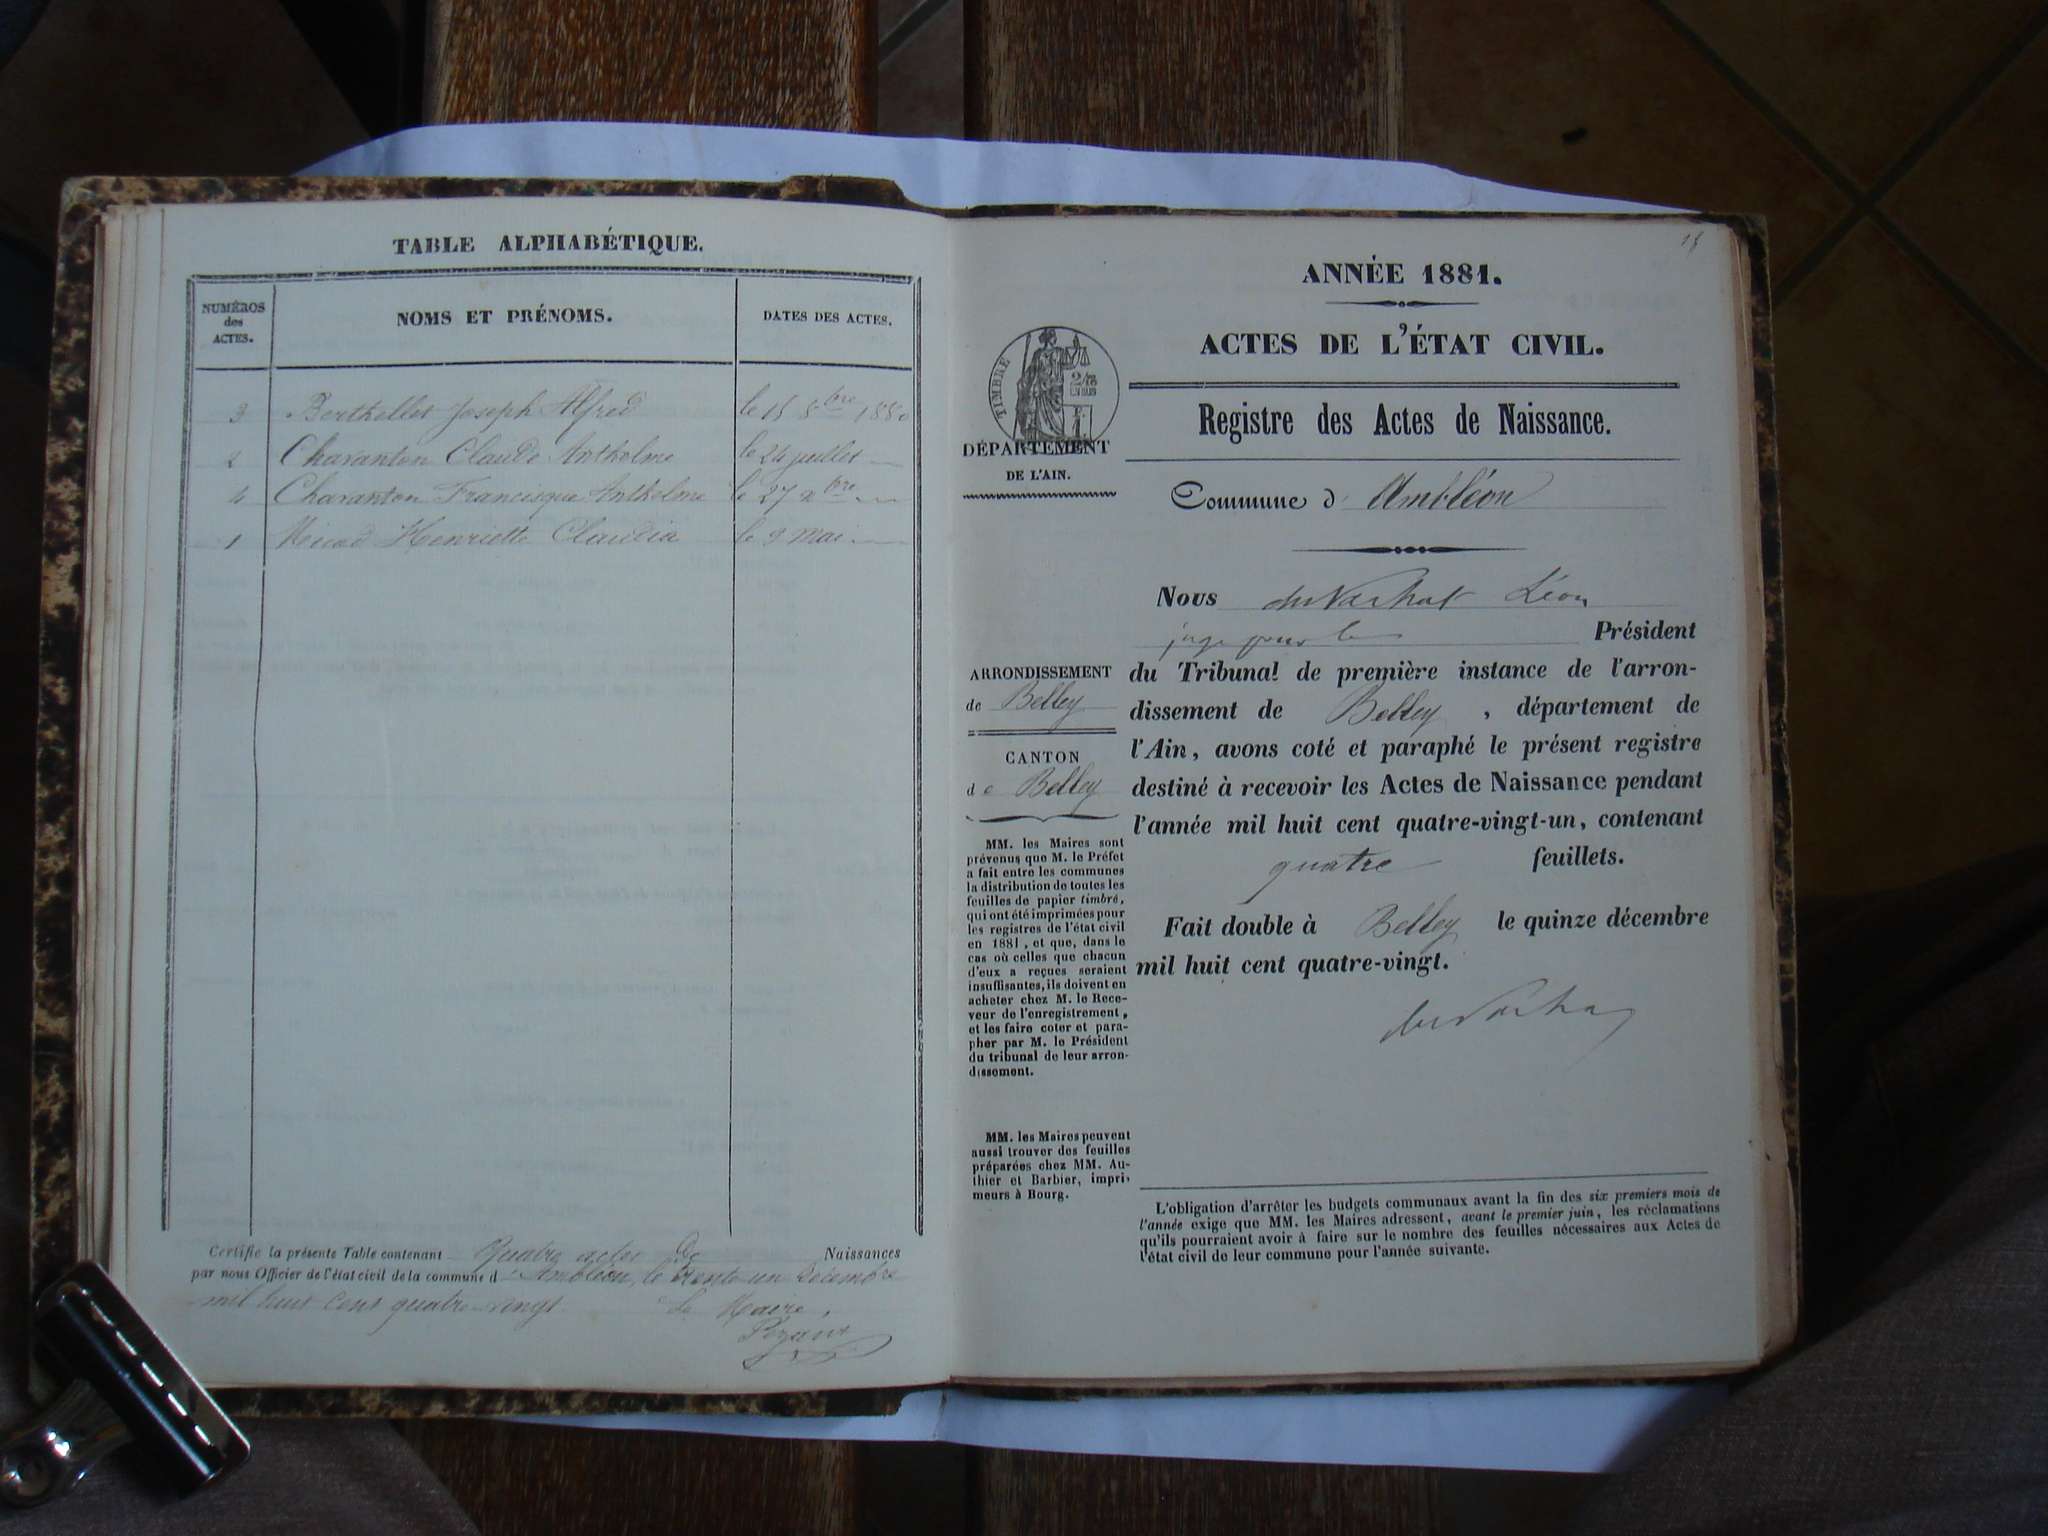 TABLE ALPHABÉTIQUE.
NUMÉROS
des
ACTES.
NOMS ET PRÉNOMS.
DATES DES ACTES.
3 Berthellet Joseph Alfred le 15 8bre 1880
2 Charanton Claude Anthelme le 24 juillet
4 Charanton Francisque Anthelme le 27 xbre
1 Henriette Claudia le 9 Mai
Certifie la présente Table contenant Quatre actes De Naissances
par nous Officier de l'état civil de la commune d'Ambléon, le trente un Décembre
mil huit cent quatre-vingt. Le Maire,
ANNÉE 1881.
ACTES DE L'ÉTAT CIVIL.
TIMBRE
DÉPARTEMENT
DE L'AIN.
Registre des Actes de Naissance.
Commune d' Ambléon
Nous Léon
juge pour le Président
ARRONDISSEMENT
de Belley
CANTON
de Belley
du Tribunal de première instance de l'arron-
dissement de Belley, département de
l'Ain, avons coté et paraphé le présent registre
destiné à recevoir les Actes de Naissance pendant
l'année mil huit cent quatre-vingt-un, contenant
quatre feuillets.
Fait double à Belley le quinze décembre
mil huit cent quatre-vingt.
MM. les Maires sont
prévenus que M. le Préfet
a fait entre les communes
la distribution de toutes les
feuilles de papier timbré,
qui ont été imprimées pour
les registres de l'état civil
en 1881, et que, dans le
cas où celles que chacun
d'eux a reçues seraient
insuffisantes, ils doivent en
acheter chez M. le Rece-
veur de l'enregistrement,
et les faire coter et para-
pher par M. le Président
du tribunal de leur arron-
dissement.
MM. les Maires peuvent
aussi trouver des feuilles
préparées chez MM. Au-
thier et Barbier, impri-
meurs à Bourg.
L'obligation d'arrêter les budgets communaux avant la fin des six premiers mois de
l'année exige que MM. les Maires adressent, avant le premier juin, les réclamations
qu'ils pourraient avoir à faire sur le nombre des feuilles nécessaires aux Actes de
l'état civil de leur commune pour l'année suivante.